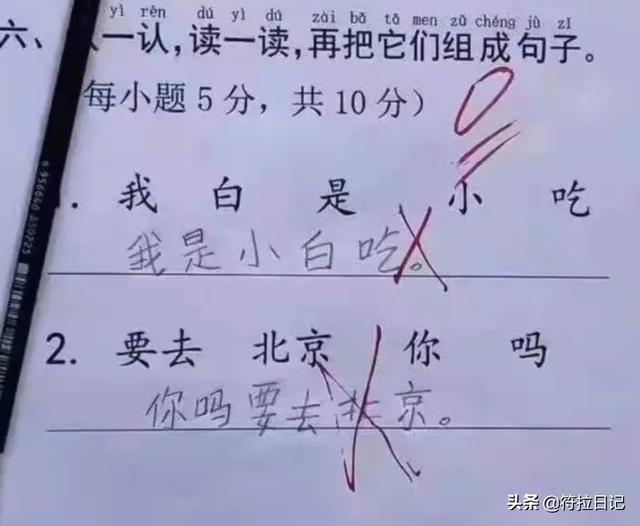 yì rèn dú yì dú zài bǎ tā men zǔ chéng jù zǐ
六、认一认，读一读，再把它们组成句子。
每小题5分，共10分）
0
. 我 白 是 小 吃
我是小白吃。
2. 要去 北京 你 吗
你吗要去北京。
头条 @符拉日记